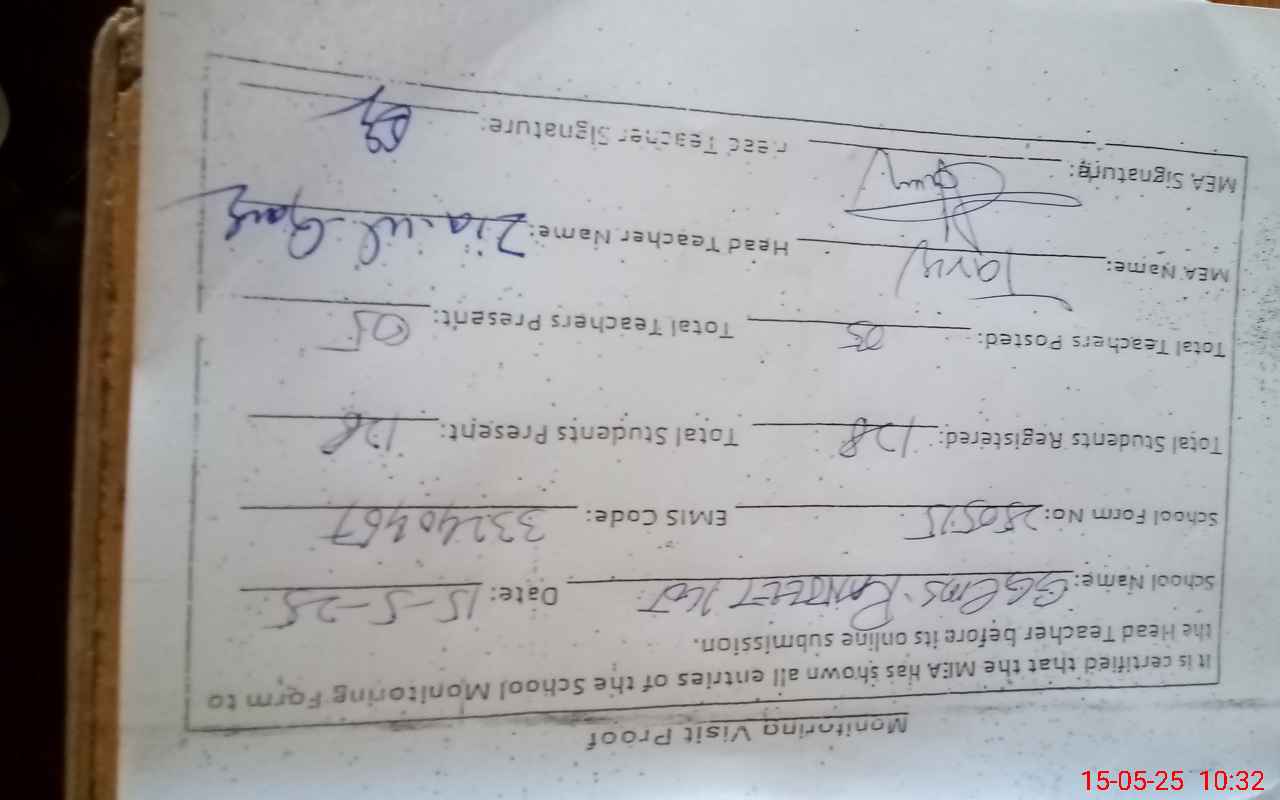 Monitoring Visit Proof
It is certified that the MEA has shown all entries of the School Monitoring Form to
the Head Teacher before its online submission.
School Name: RANJEET KOT Date: 15-5-25
School Form No: 280515 EMIS Code: 33240467
Total Students Registered: 128 Total Students Present: 128
Total Teachers Posted: 05 Total Teachers Present: 05
MEA Name: Head Teacher Name: Zia-ul-
MEA Signature: Head Teacher Signature:
15-05-25 10:32